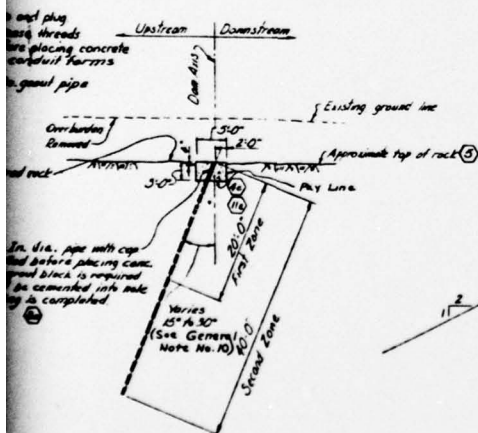 and plug
threads
placing concrete
conduit forms
grout pipe
Upstream
Downstream
Dam Axis
Existing ground line
Overburden
Removed
5'-0"
2'-0"
Approximate top of rock 5
rock
3'-0"
Pay Line
4c
11c
In. dia. pipe with cap
before placing conc.
block is required
be cemented into hole
is completed
20'-0"
First Zone
40'-0"
Second Zone
Varies
15° to 30°
(See General
Note No. 10)
2
1